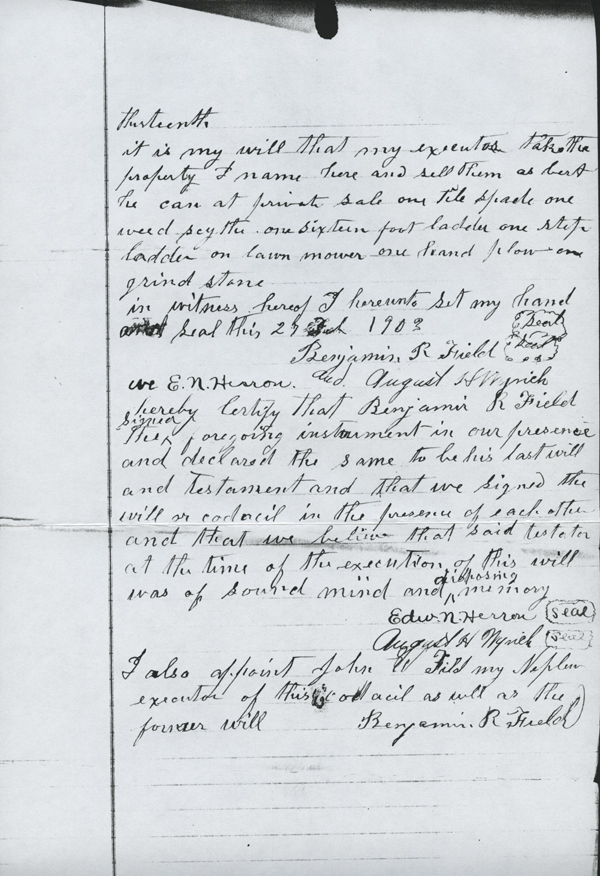 thirteenth
it is my will that my executor take the
property I name here and sell them as best
he can at private sale one tile spade one
weed scythe one sixteen foot ladder one step
ladder on lawn mower one hand plow on
grind stone
in witness hereof I hereunto set my hand
and seal this 27 Feb 190 Seal
Benjamin R Field Seal
we E. N. Herron. and. August H Wyrich
hereby Certify that Benjamin R Field
signed
the foregoing instrument in our presence
and declared the same to be his last will
and testament and that we signed the
will or codacil in the presence of each other
and that we believe that said testator
at the time of the execution of this will
disposing
was of sound mind and memory
Edw. N. Herron Seal
August H Wyrich Seal
I also appoint John Field my Nephew
executor of this codacil as will as the
former will Benjamin R Field